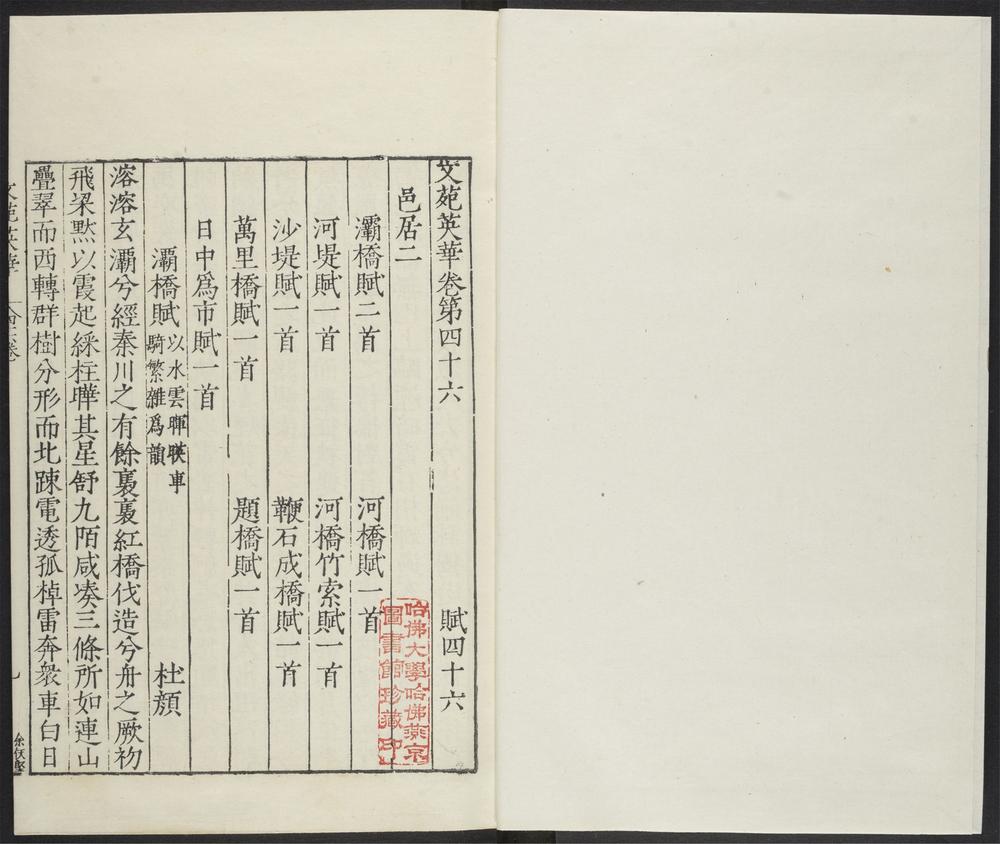 文苑英華卷第四十六　賦四十六
邑居二
灞橋賦二首　河橋賦一首
河堤賦一首　河橋竹索賦一首
沙堤賦一首　鞭石成橋賦一首
萬里橋賦一首　題橋賦一首
日中爲市賦一首
灞橋賦以水雲暉暎車騎繁雜爲韻　杜頠
溶溶玄灞兮經秦川之有餘裊裊紅橋伐造兮舟之厥初
飛梁默以霞起綵柱曄其星舒九陌咸凑三條所如連山
疊翠而西轉群樹分形而北踈電透孤棹雷奔衆車白日
哈佛大學哈佛燕京
圖書館珍藏印
文苑英華